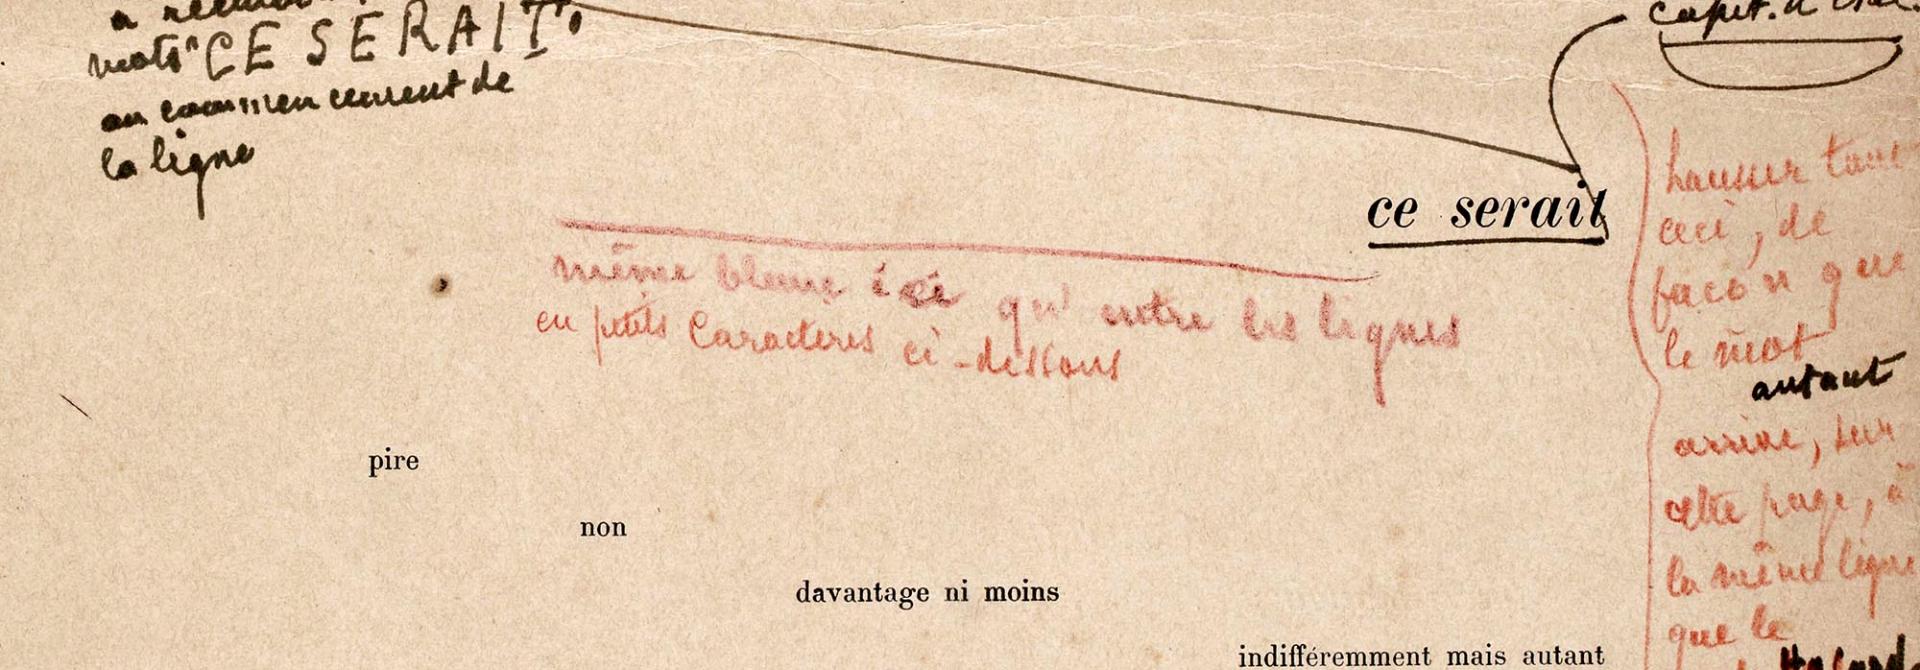 mots "CE SERAIT"
au commencement de
la ligne
capit. d'
ce serait
même blanc ici qu'entre les lignes
en petits caractères ci-dessous
hausser tout
ceci, de
façon que
le mot
autant
arrive, sur
cette page, à
la même ligne
que le
pire
non
davantage ni moins
indifféremment mais autant